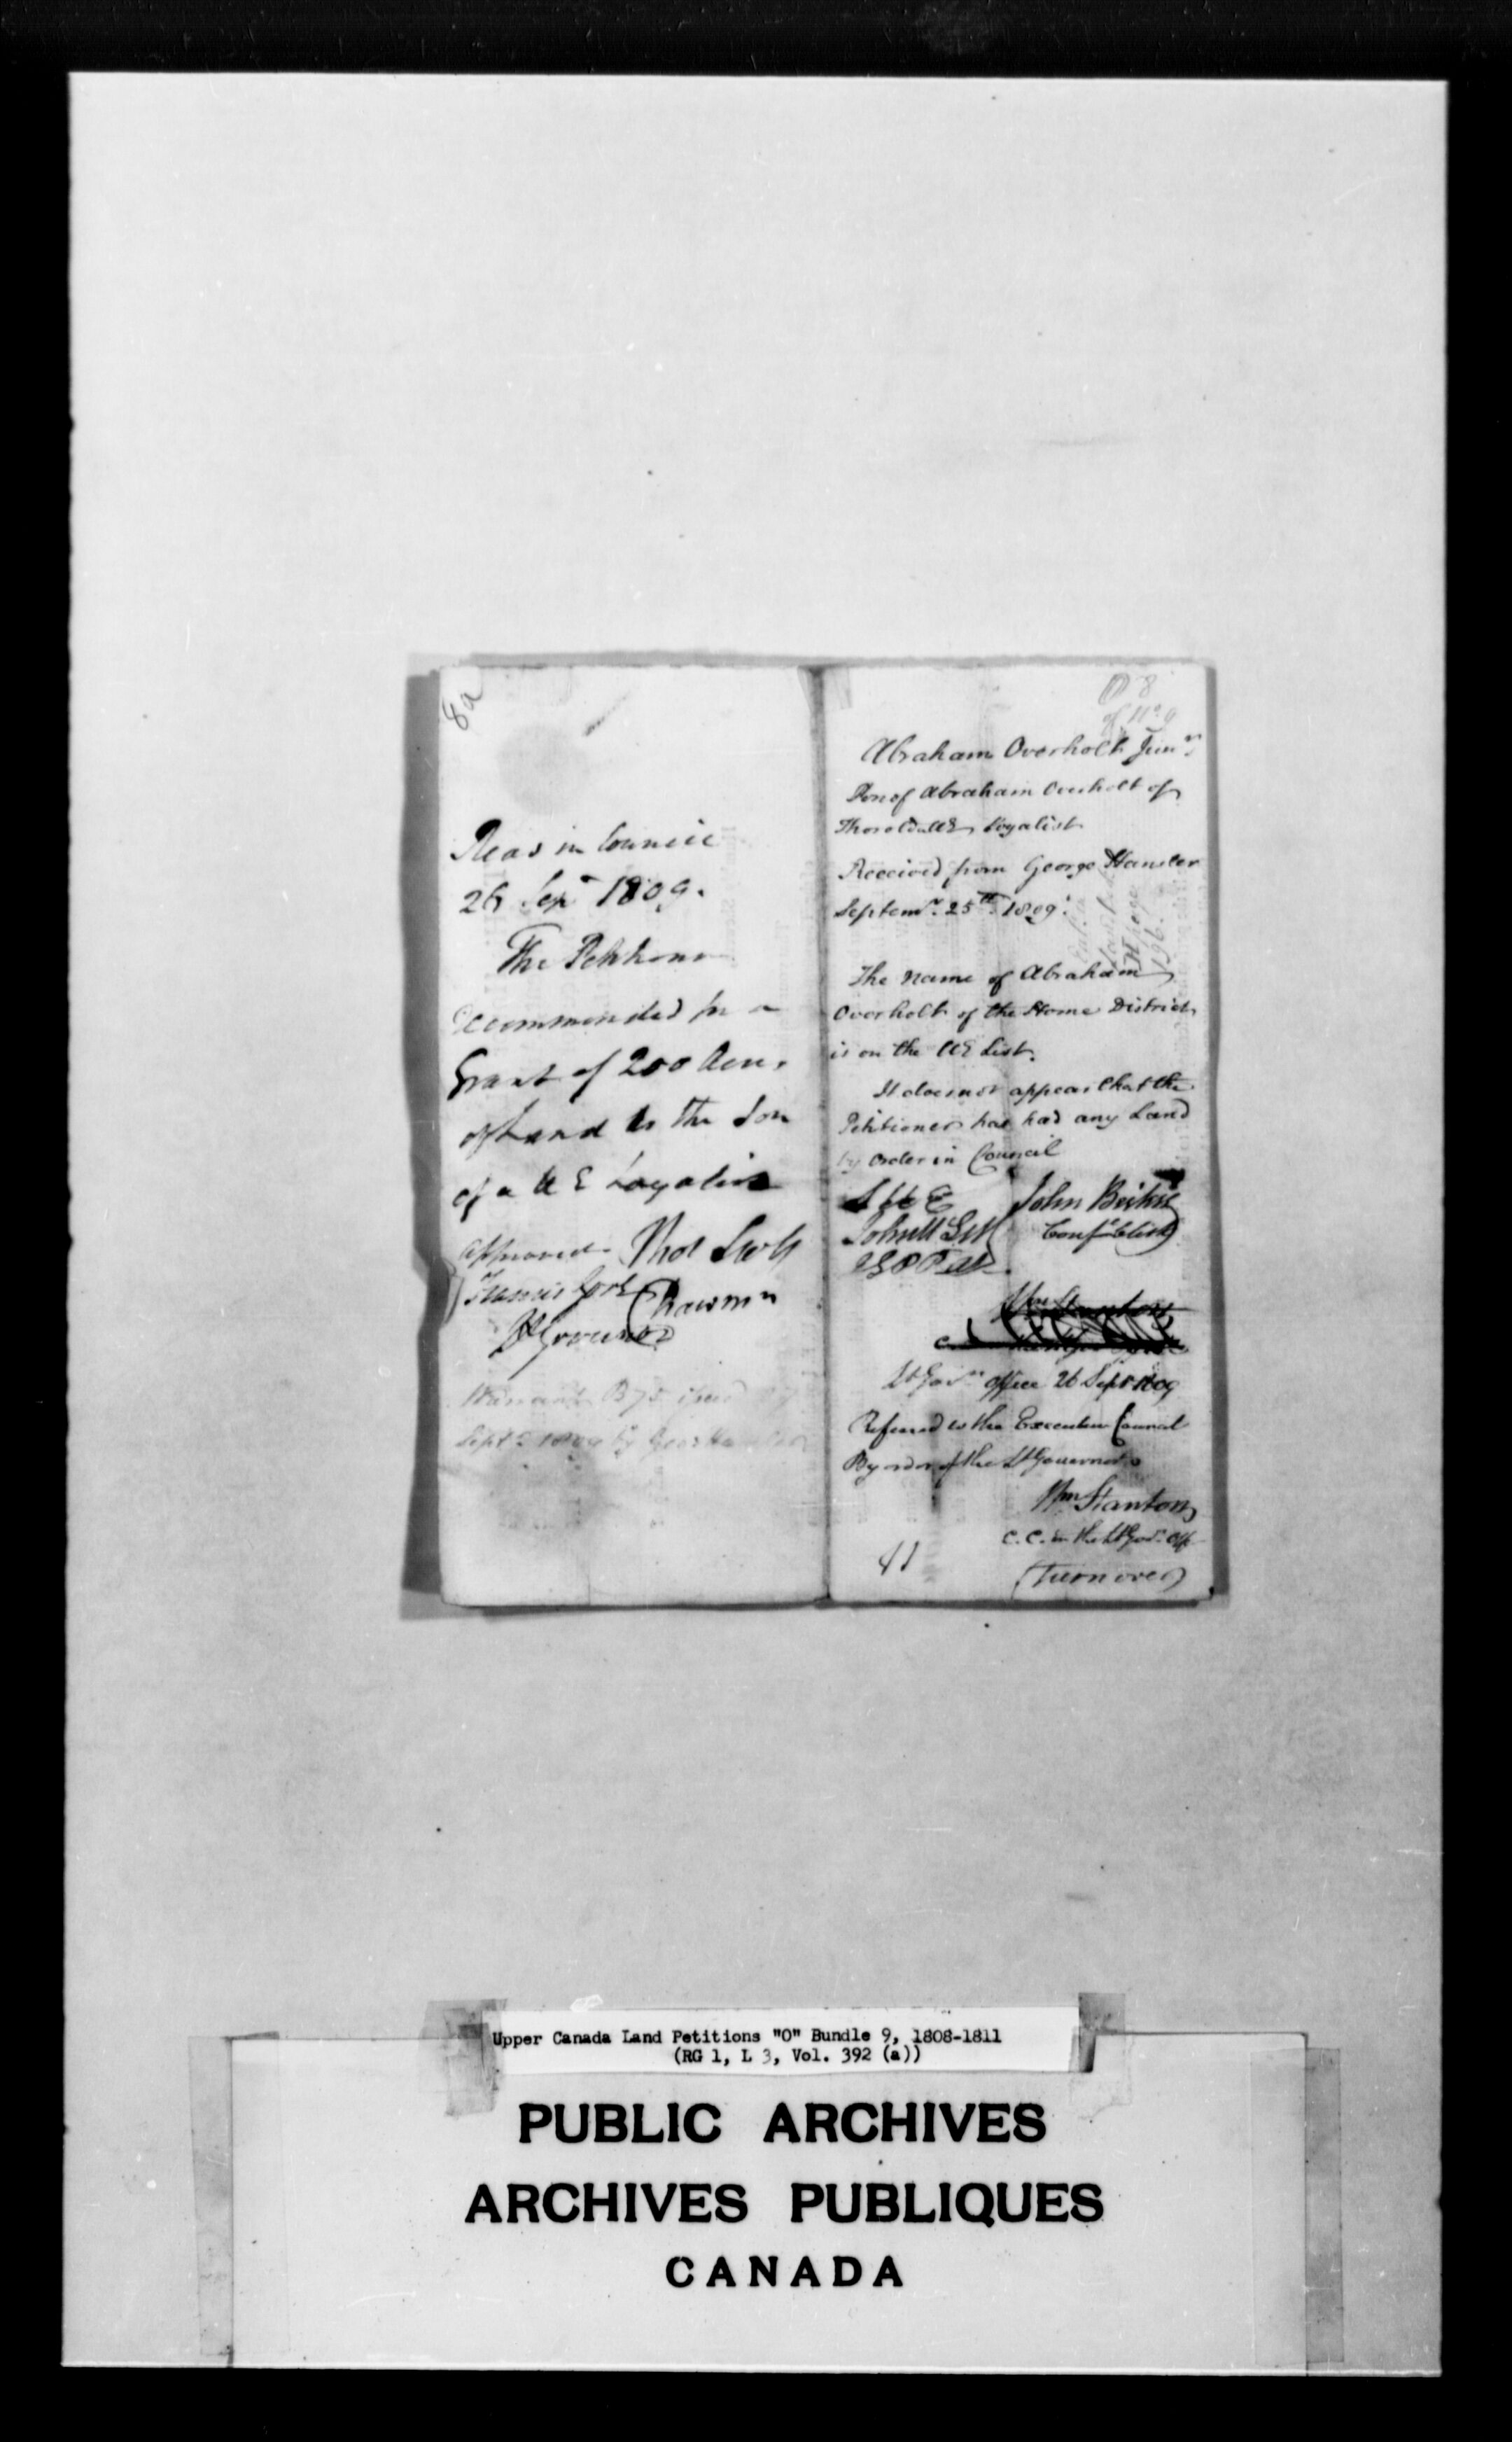 8a
Read in Council
26 Sept 1809.
The Petitioner
recommended for a
Grant of 200 Acres
of Land as the Son
of a UE Loyalist
Approved Thos Scott
Francis Gore Chairman
Lt Governor
Warrant issued
Sept 1809 by Geo
O 8
of No 9
Abraham Overholt Junr
Son of Abraham Overholt of
Thorold UE Loyalist
Received from George Hansler
Septemr. 25th 1809.
The name of Abraham
Overholt of the Home District
is on the UE List.
It does not appear that the
Petitioner has had any Land
by Order in Council
John Beikie
Confl Clerk
Lt Govrs Office 26 Sept 1809
Referred to the Executive Council
By order of the Lt Governor
Wm Stanton
C. C. in the Lt Govr. Off
(Turn over)
Upper Canada Land Petitions "O" Bundle 9, 1808-1811
(RG 1, L 3, Vol. 392 (a))
PUBLIC ARCHIVES
ARCHIVES PUBLIQUES
CANADA